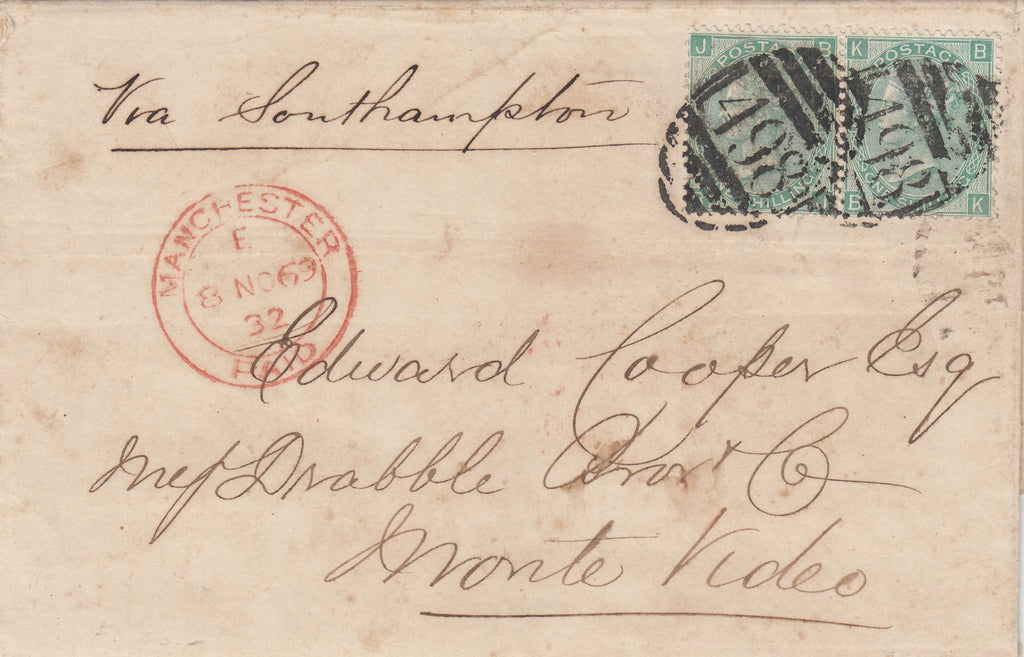 Via Southampton
J POSTAGE B
K POSTAGE B
498
498
SHILLING
B K
MANCHESTER
E
8 NO 69
32
PAID
Edward Cooper Esq
Mesſ Drabble Bros & Co
Monte Video